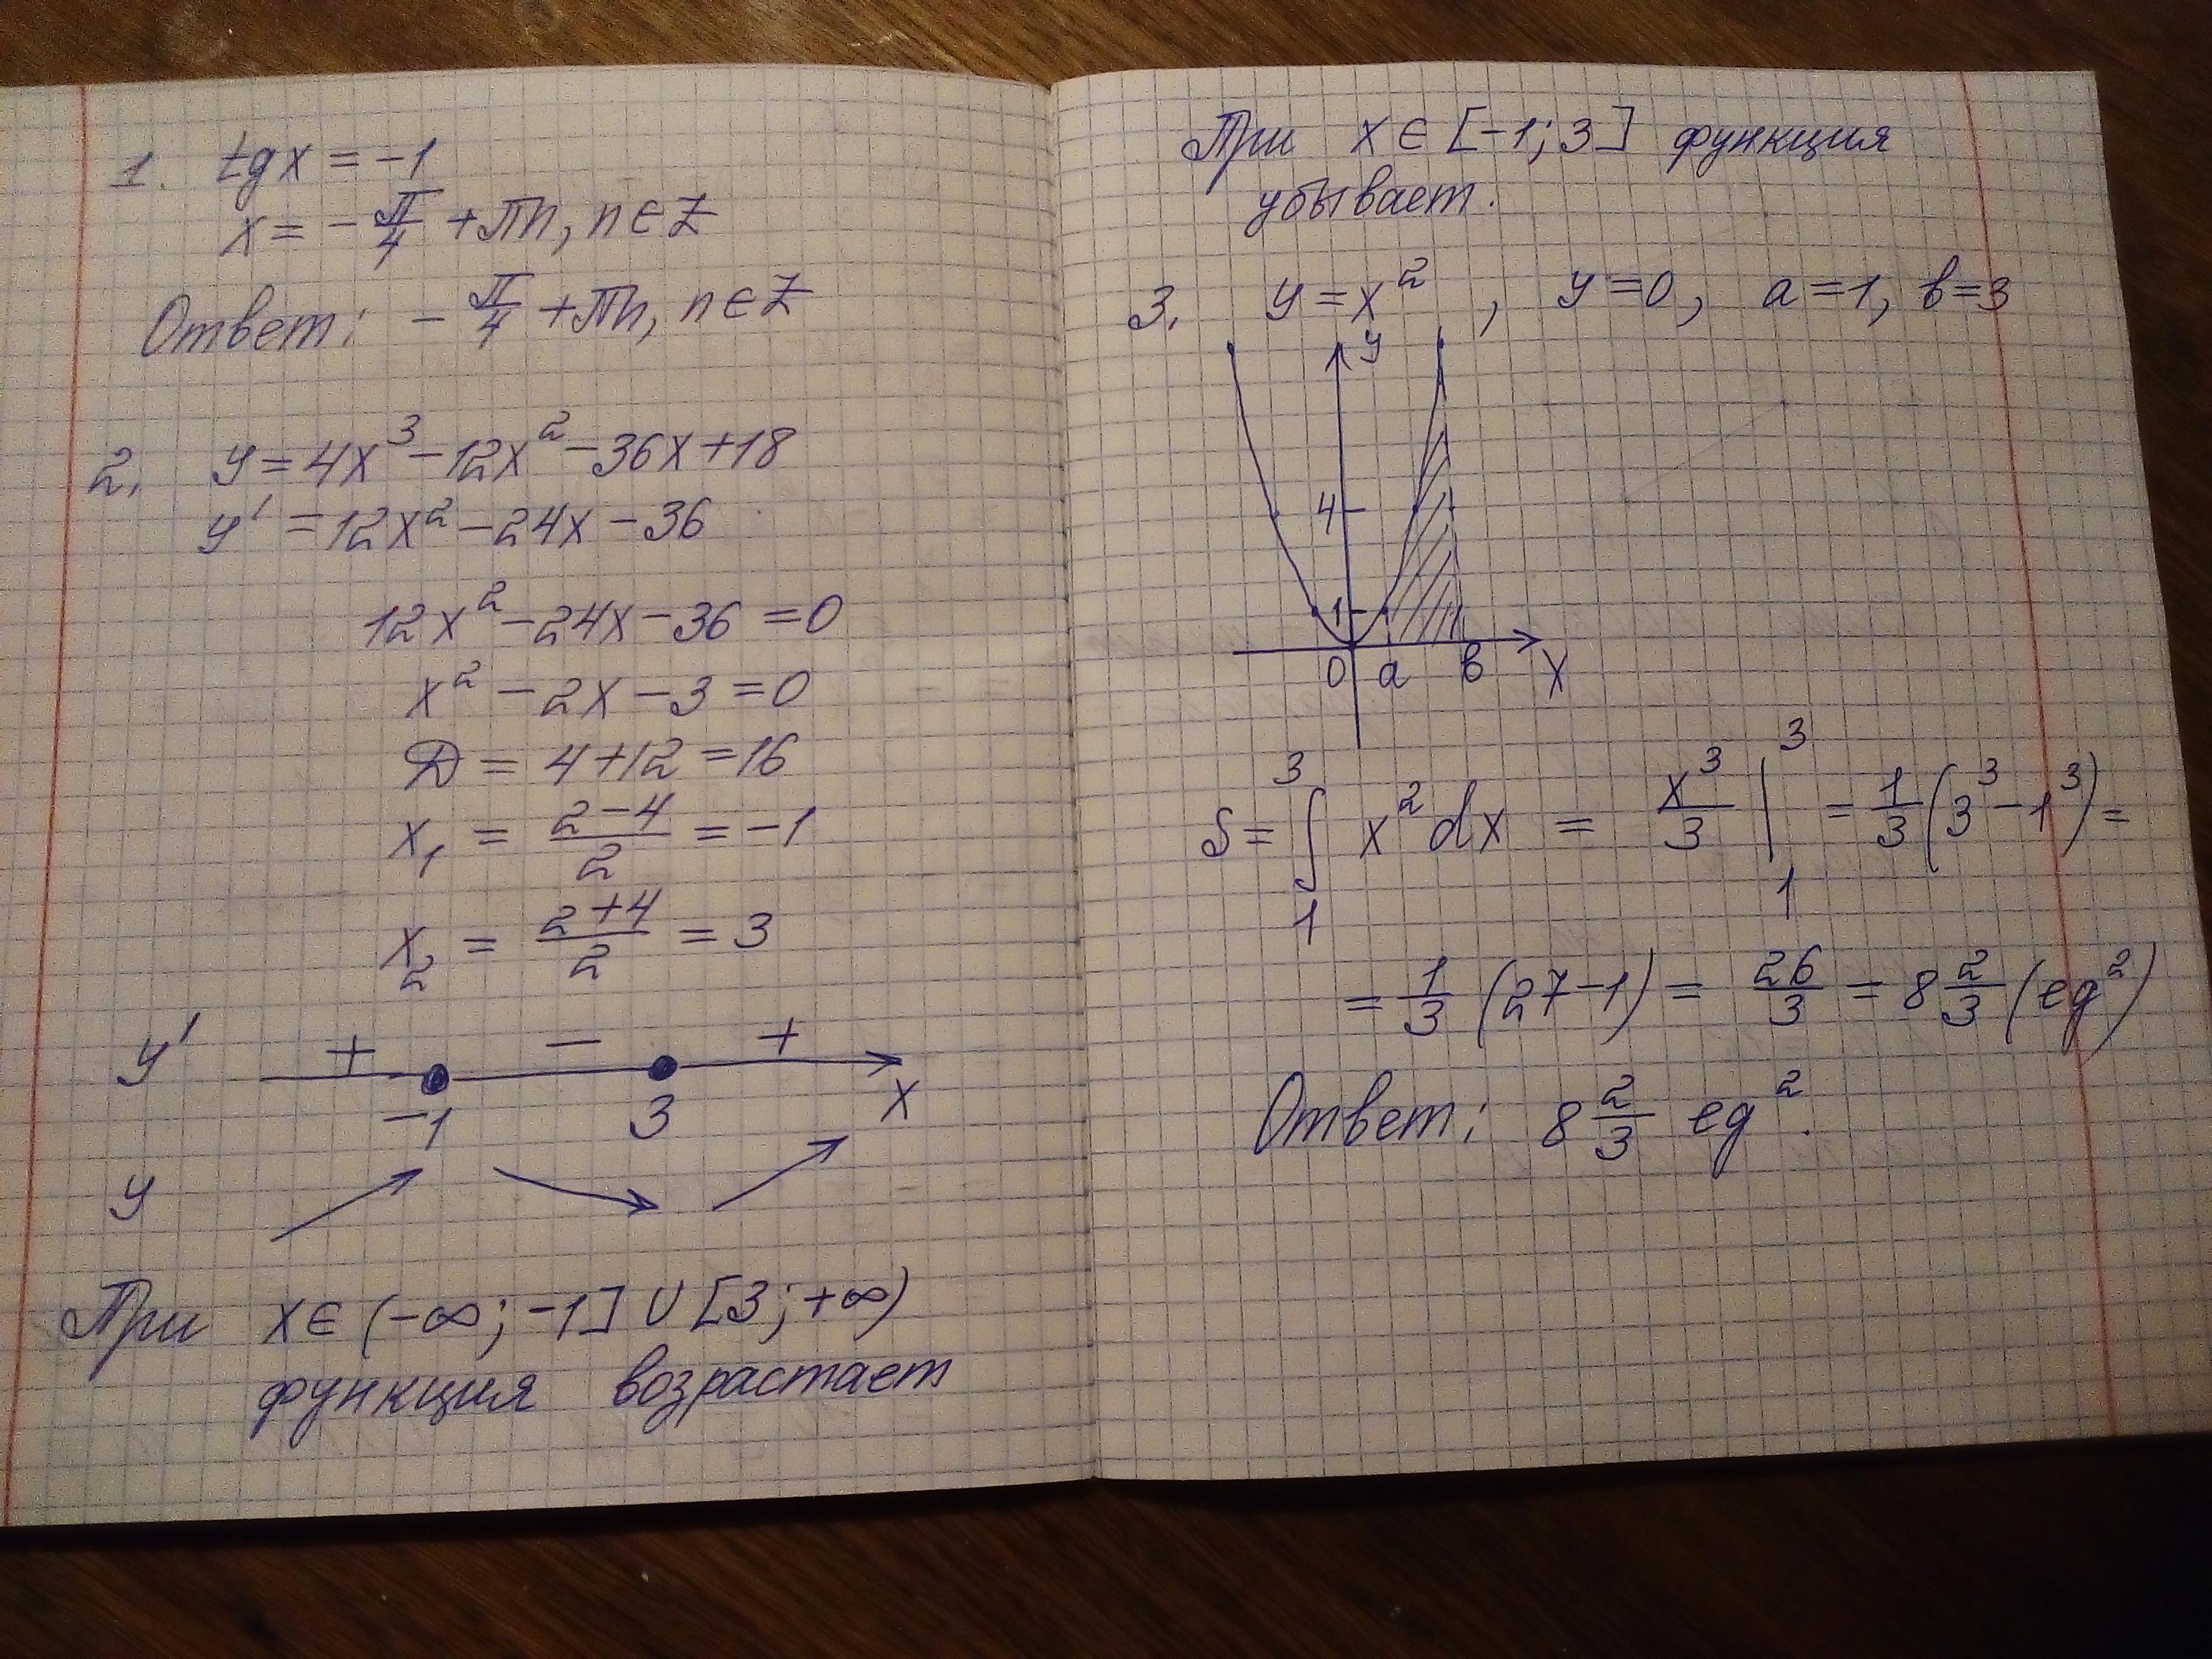 1. tg x = -1
x = -π/4 + πn, n ∈ Z
Ответ: -π/4 + πn, n ∈ Z
2. y = 4x³ - 12x² - 36x + 18
y' = 12x² - 24x - 36
12x² - 24x - 36 = 0
x² - 2x - 3 = 0
Д = 4 + 12 = 16
x₁ = (2-4)/2 = -1
x₂ = (2+4)/2 = 3
y' + - +
-1 3 x
y
При x ∈ (-∞; -1] ∪ [3; +∞)
функция возрастает
При x ∈ [-1; 3] функция
убывает.
3. y = x², y = 0, a = 1, b = 3
y
4
1
0 a b x
S = ∫₁³ x² dx = x³/3 |₁³ = 1/3 (3³ - 1³) =
= 1/3 (27 - 1) = 26/3 = 8 2/3 (ед²)
Ответ: 8 2/3 ед².